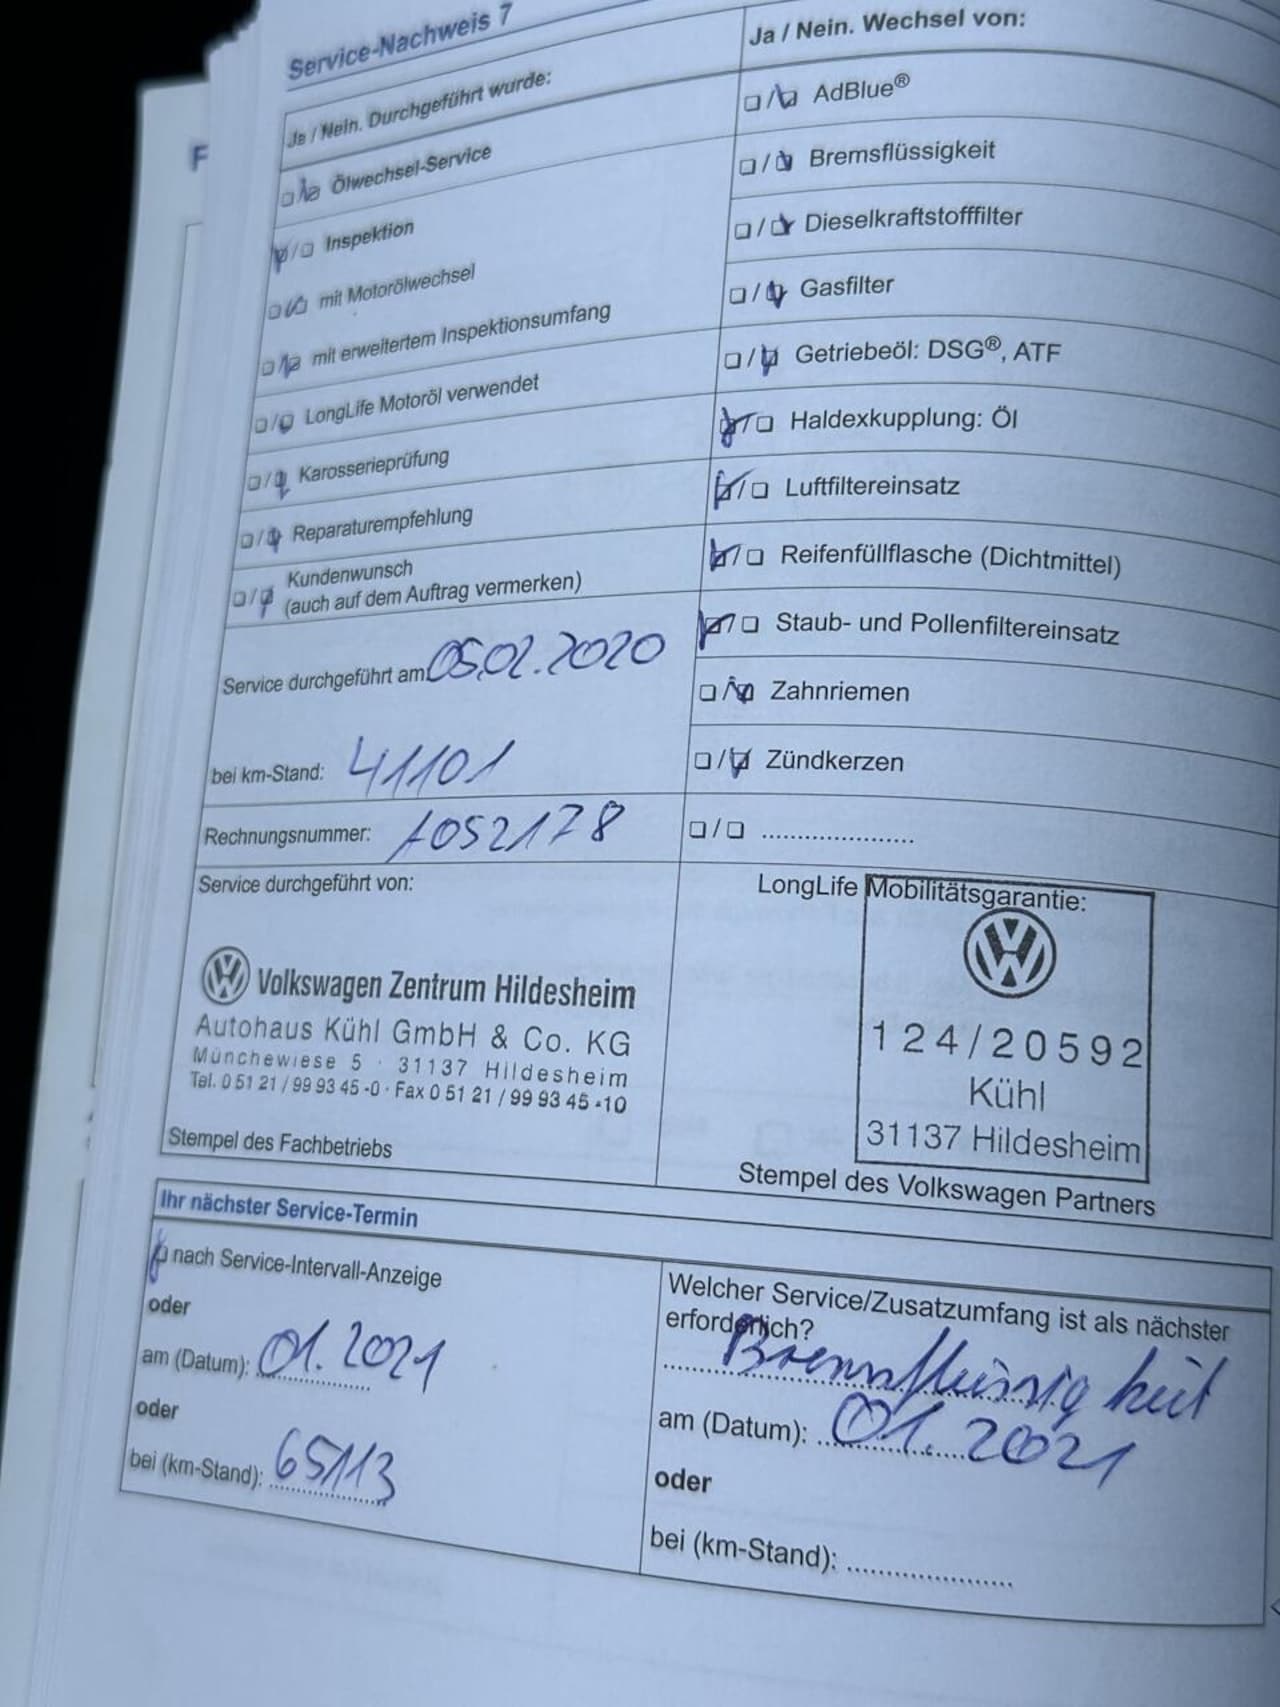 Service-Nachweis 7
Ja / Nein. Durchgeführt wurde:
Ölwechsel-Service
Inspektion
mit Motorölwechsel
mit erweitertem Inspektionsumfang
LongLife Motoröl verwendet
Karosserieprüfung
Reparaturempfehlung
Kundenwunsch
(auch auf dem Auftrag vermerken)
Service durchgeführt am: 05.02.2020
bei km-Stand: 41101
Rechnungsnummer: 1052178
Service durchgeführt von:
Volkswagen Zentrum Hildesheim
Autohaus Kühl GmbH & Co. KG
Münchewiese 5 · 31137 Hildesheim
Tel. 0 51 21 / 99 93 45 -0 · Fax 0 51 21 / 99 93 45 -10
Stempel des Fachbetriebs
Ja / Nein. Wechsel von:
AdBlue®
Bremsflüssigkeit
Dieselkraftstofffilter
Gasfilter
Getriebeöl: DSG®, ATF
Haldexkupplung: Öl
Luftfiltereinsatz
Reifenfüllflasche (Dichtmittel)
Staub- und Pollenfiltereinsatz
Zahnriemen
Zündkerzen
LongLife Mobilitätsgarantie:
124/20592
Kühl
31137 Hildesheim
Stempel des Volkswagen Partners
Ihr nächster Service-Termin
nach Service-Intervall-Anzeige
oder
am (Datum): 01.2021
oder
bei (km-Stand): 65113
Welcher Service/Zusatzumfang ist als nächster
erforderlich?
Bremsflüssigkeit
am (Datum): 01.2021
oder
bei (km-Stand):
F